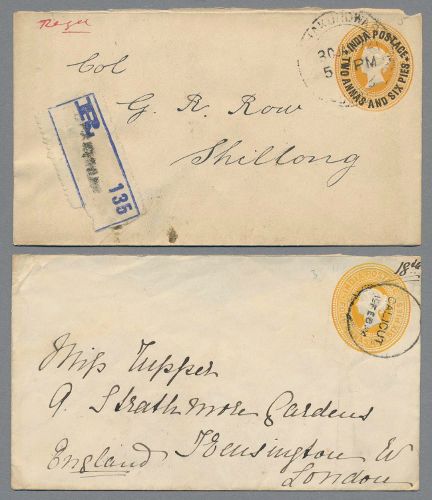 Regd
INDIA POSTAGE
TWO ANNAS AND SIX PIES
5 PM
Col
G. R. Row
Shillong
R
135
18th
CALICUT
FEB
SIX PIES
Miss Tupper
9. Strathmore Gardens
Kensington W
England
London